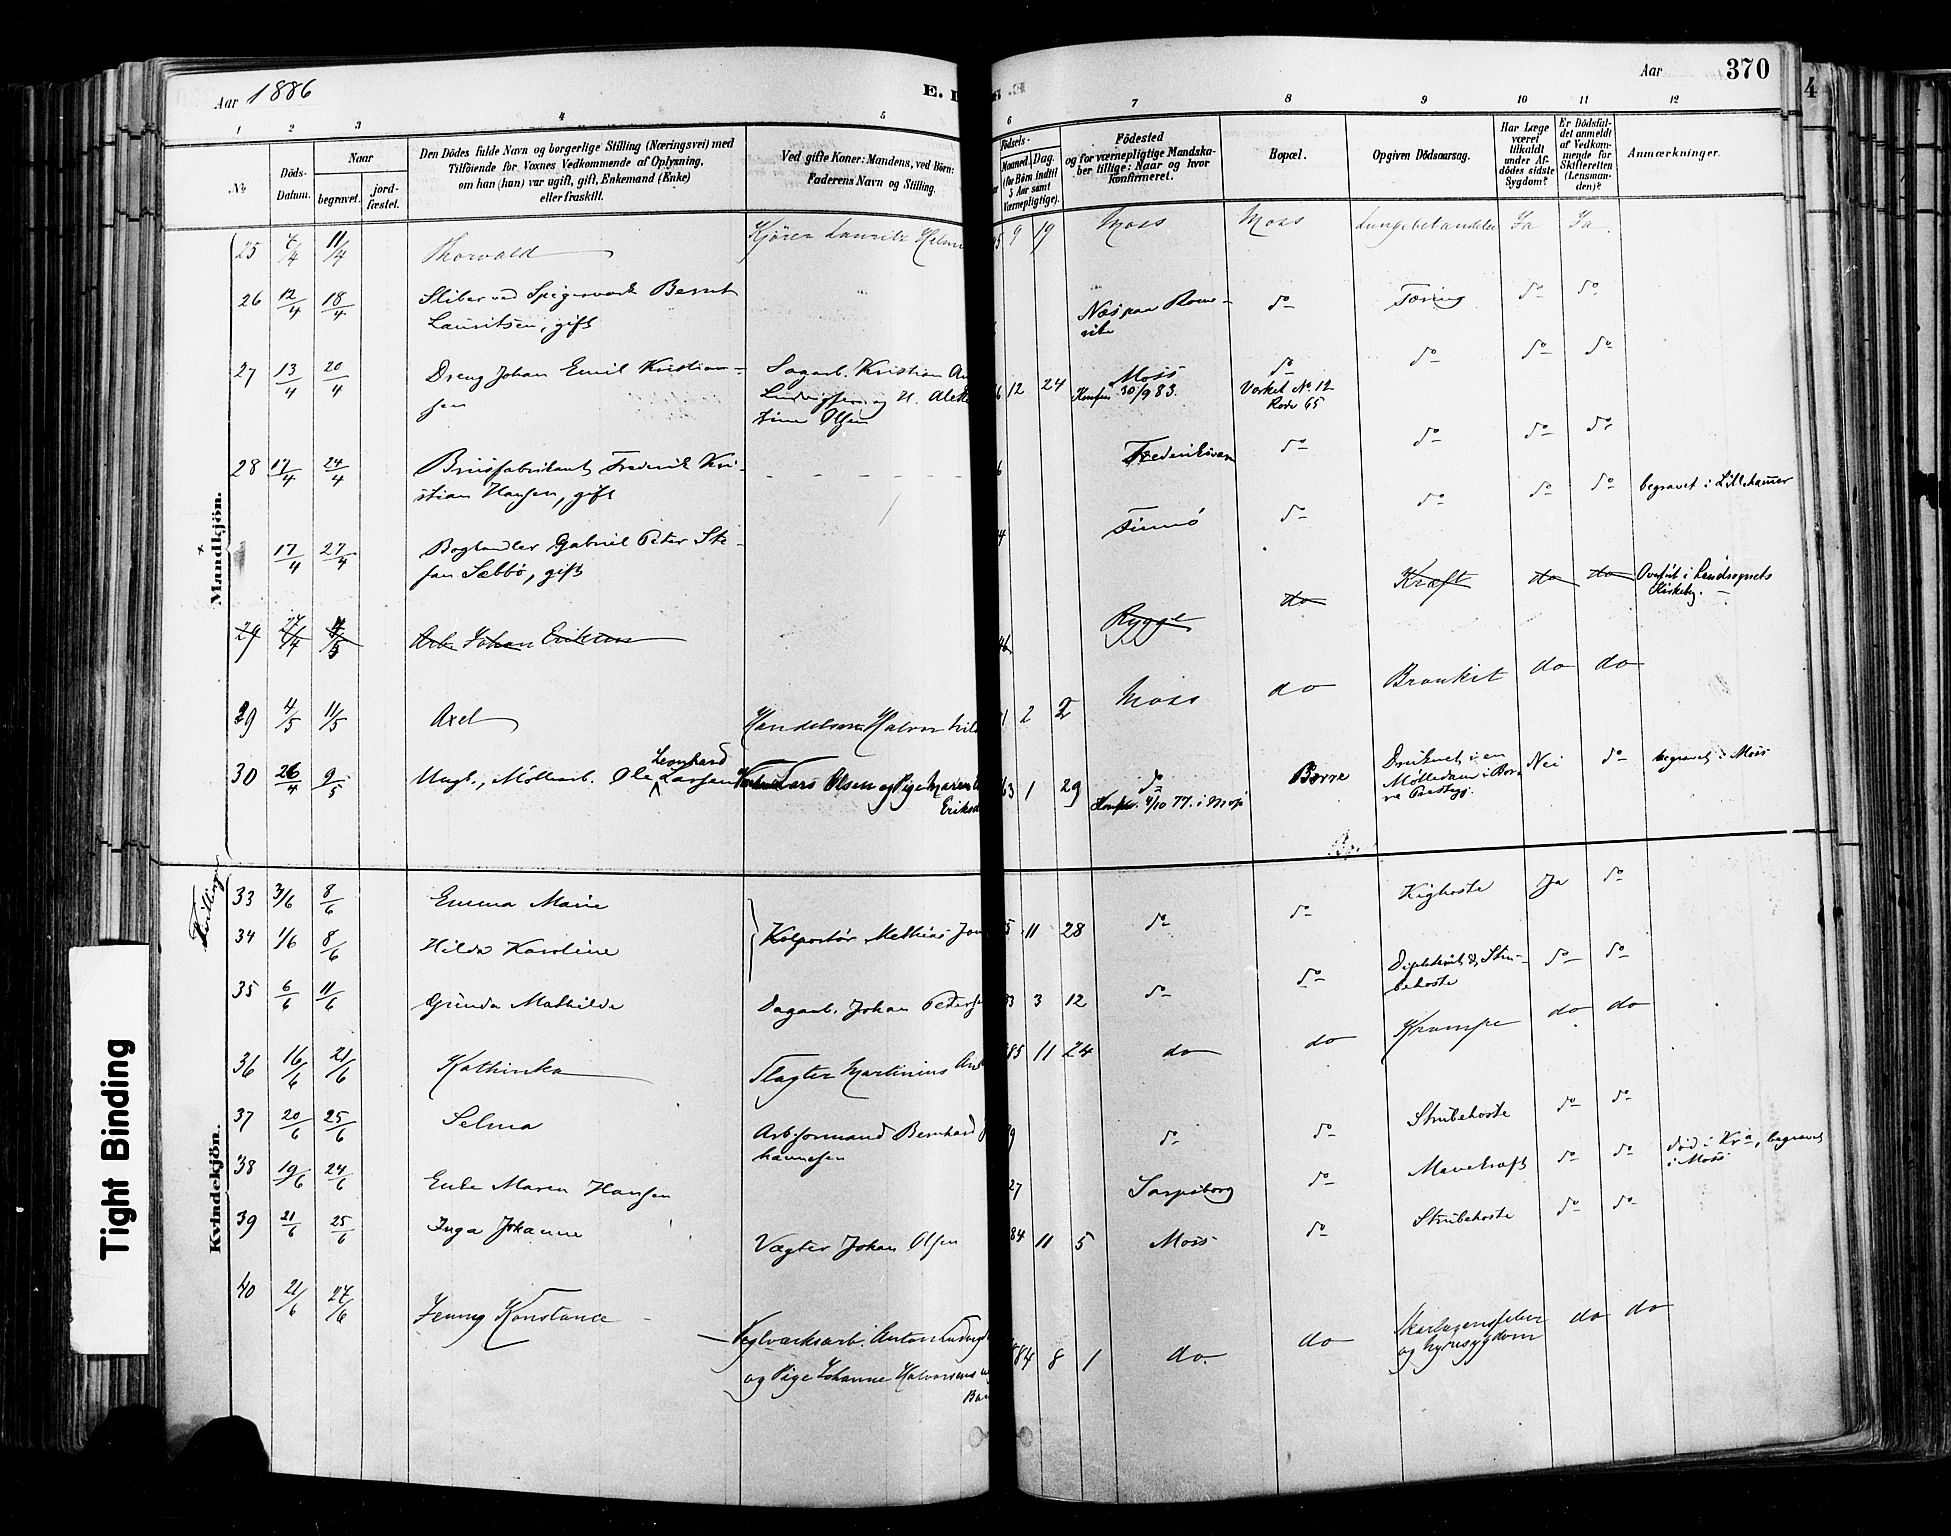 Aar 1886
E.
Aar
370
4
1 2 3 4 5 6 7 8 9 10 11 12
No
Döds-
Datum.
Naar
begravet.
jord-
fæstet.
Den Dödes fulde Navn og borgerlige Stilling (Næringsvei) med
Tilföiende för Voxnes Vedkommende af Oplysning,
om han (hun) var ugift, gift, Enkemand (Enke)
eller fraskilt.
Ved gifte Koner: Mandens, ved Börn:
Faderens Navn og Stilling.
Födsels-
Maaned. Dag.
(for Börn indtil
5 Aar samt
Værnepligtige).
Födested
og for værnepligtige Mandska-
ber tillige: Naar og hvor
konfirmeret.
Bopæl.
Opgiven Dödsaarsag.
Har Læge
været
tilkaldt
under Af-
dödes sidste
Sygdom?
Er Dödsfal-
det anmeldt
af Vedkom-
mende for
Skifteretten
(Lensman-
den)?
Anmærkninger.
Mandkjön.
25 7/4 11/4 Thorvald Kjører Lauritz 5 9 19 Moss Moss Lungebetændelse Ja Ja
26 12/4 18/4 Sliber ved Spigerverk Bernt
Lauritsen, gift
Næs paa Rome-
rike do Tæring do do
27 13/4 20/4 Dreng Johan Emil Kristian-
sen
Sagarb. Kristian
Ludvigsen og H.
tine Olsen
6 12 24 Moss
Konfirm 30/9 83.
do
Værket No. 12
Rode 65
do do do
28 17/4 24/4 Brusfabrikant Frederik Kri-
stian Hansen, gift
6 Frederiksværn do do do do
17/4 27/4 Boghandler Gabriel Peter Ste-
fan Sæbbø, gift
4 Finnø do do do do begravet i Lillehammer
29 27/4 Arb. Johan Eriksen 46 Rygge do Kræft do do Overført i Landsognets
Kirkebog.
29 4/5 11/5 Axel Handelsm. Halvor 1 2 2 Moss do Bronkit do do
30 26/4 9/5 Ungk., Møllearb. Ole Leonhard Larsen
Lars Olsen og Pige Maren
Eriksd
63 1 29 do
Konfirm. 7/10 77. i Moss
Borre
Druknet i en
Mølledam i Bor-
re Præstegj.
Nei do begravet i Moss
Kvindekjön.
Tvillinger
33 3/6 8/6 Emma Marie
Kolportør Mathias
5 11 28 do do Kighoste Ja do
34 1/6 8/6 Hilda Karoline
do Difterit & Stru-
behoste do do
35 6/6 11/6 Gunda Mathilde Dagarb. Johan Peders 83 3 12 do
36 16/6 21/6 Kathinka Slagter Martinius 85 11 24 do do Krampe do do
37 20/6 25/6 Selma Arb.formand Bernhard
hannesen
9 do do Strubehoste do do
38 19/6 24/6 Enke Maren Hansen 27 Sarpsborg do Mavekræft do do død i Kra, begravet
i Moss
39 21/6 25/6 Inga Johanne Vægter Johan Olsen 84 11 5 Moss do Strubehoste do do
40 21/6 27/6 Jenny Konstance
Teglværksarb. Anton Ludvig
og Pige Johanne Halvorsens
84 8 1 do. do
Skarlagensfeber
og nyresygdom
do do
Tight Binding